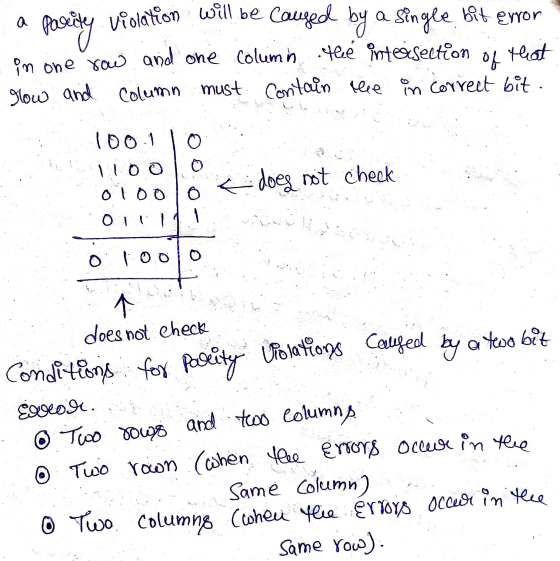 a parity violation will be caused by a single bit error
in one row and one column. the intersection of that
row and column must contain the in correct bit.
1001 | 0
1100 | 0
0100 | 0 ← does not check
0111 | 1
0 100 | 0
↑
does not check
Conditions for parity violations caused by a two bit
Error.
Two rows and two columns
Two rown (when the errors occur in the
same column)
Two columns (when the errors occur in the
same row).